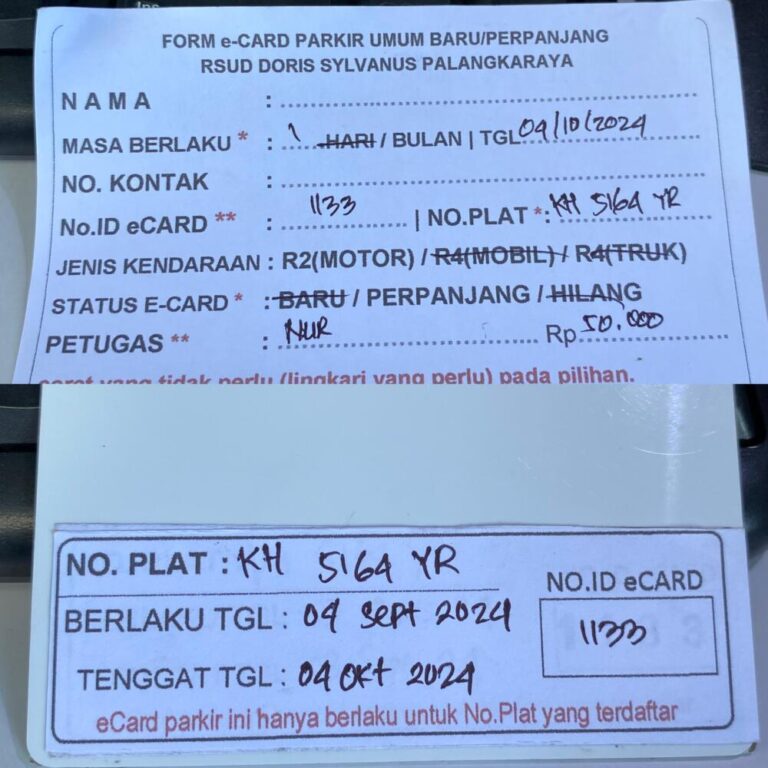 FORM e-CARD PARKIR UMUM BARU/PERPANJANG
RSUD DORIS SYLVANUS PALANGKARAYA
NAMA :
MASA BERLAKU * : 1 HARI / BULAN | TGL 04/10/2024
NO. KONTAK :
No.ID eCARD ** : 1133 | NO.PLAT *: KH 5164 YR
JENIS KENDARAAN : R2(MOTOR) / R4(MOBIL) / R4(TRUK)
STATUS E-CARD * : BARU / PERPANJANG / HILANG
PETUGAS ** : NUR Rp 50.000
coret yang tidak perlu (lingkari yang perlu) pada pilihan.
NO. PLAT : KH 5164 YR
BERLAKU TGL : 04 Sept 2024
TENGGAT TGL : 04 OKT 2024
NO.ID eCARD
1133
eCard parkir ini hanya berlaku untuk No.Plat yang terdaftar